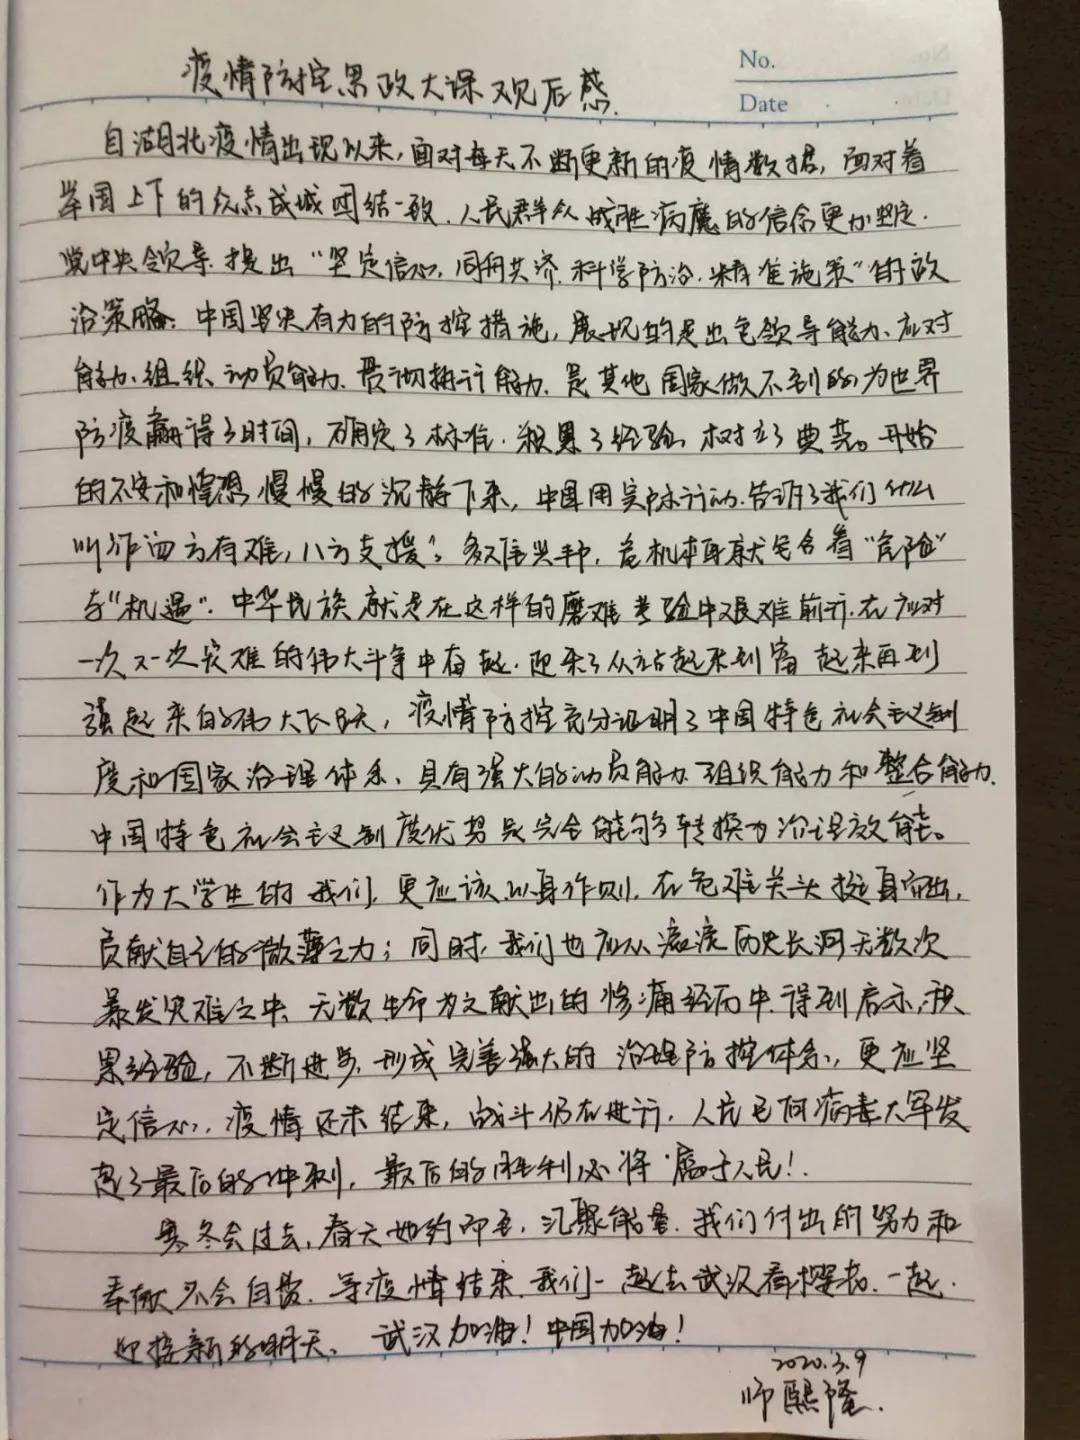 疫情防控思政大课观后感.
No.
Date
自湖北疫情出现以来,面对每天不断更新的疫情数据,面对着
举国上下的众志成城团结一致.人民群众战胜病魔的信念更加坚定.
党中央领导.提出“坚定信心.同舟共济.科学防治.精准施策”的政
治策略.中国坚决有力的防控措施,展现的是出色领导能力、应对
能力、组织、动员能力.贯彻执行能力.是其他国家做不到的为世界
防疫赢得了时间,确定了标准.积累了经验.树立了典范。开始
的不安和惶恐.慢慢的沉静下来,中国用实际行动.告诉了我们什么
叫作“一方有难,八方支援”。多难兴邦,危机本身就包含着“危险”
与“机遇”.中华民族就是在这样的磨难考验中艰难前行.在应对
一次又一次灾难的伟大斗争中奋起.迎来了从站起来到富起来再到
强起来的伟大飞跃,疫情防控充分证明了中国特色社会主义制
度和国家治理体系、具有强大的动员能力.组织能力和整合能力.
中国特色社会主义制度优势是完全能够转换为治理效能。
作为大学生的我们.更应该以身作则.在危难关头挺身而出,
贡献自己的微薄之力;同时.我们也应从滚滚历史长河无数次
暴发灾难之中、无数生命为之献出的惨痛经历中.得到启示,积
累经验,不断进步.形成完善强大的治理防控体系,更应坚
定信心.疫情还未结束,战斗仍在进行.人民已向病毒大军发
起了最后的冲刺,最后的胜利必将属于人民!.
寒冬会过去,春天如约而至.汇聚能量.我们付出的努力和
奉献不会白费.等疫情结束.我们一起去武汉看樱花.一起.
迎接新的明天、武汉加油!中国加油!
2020.3.9
师熙隆.